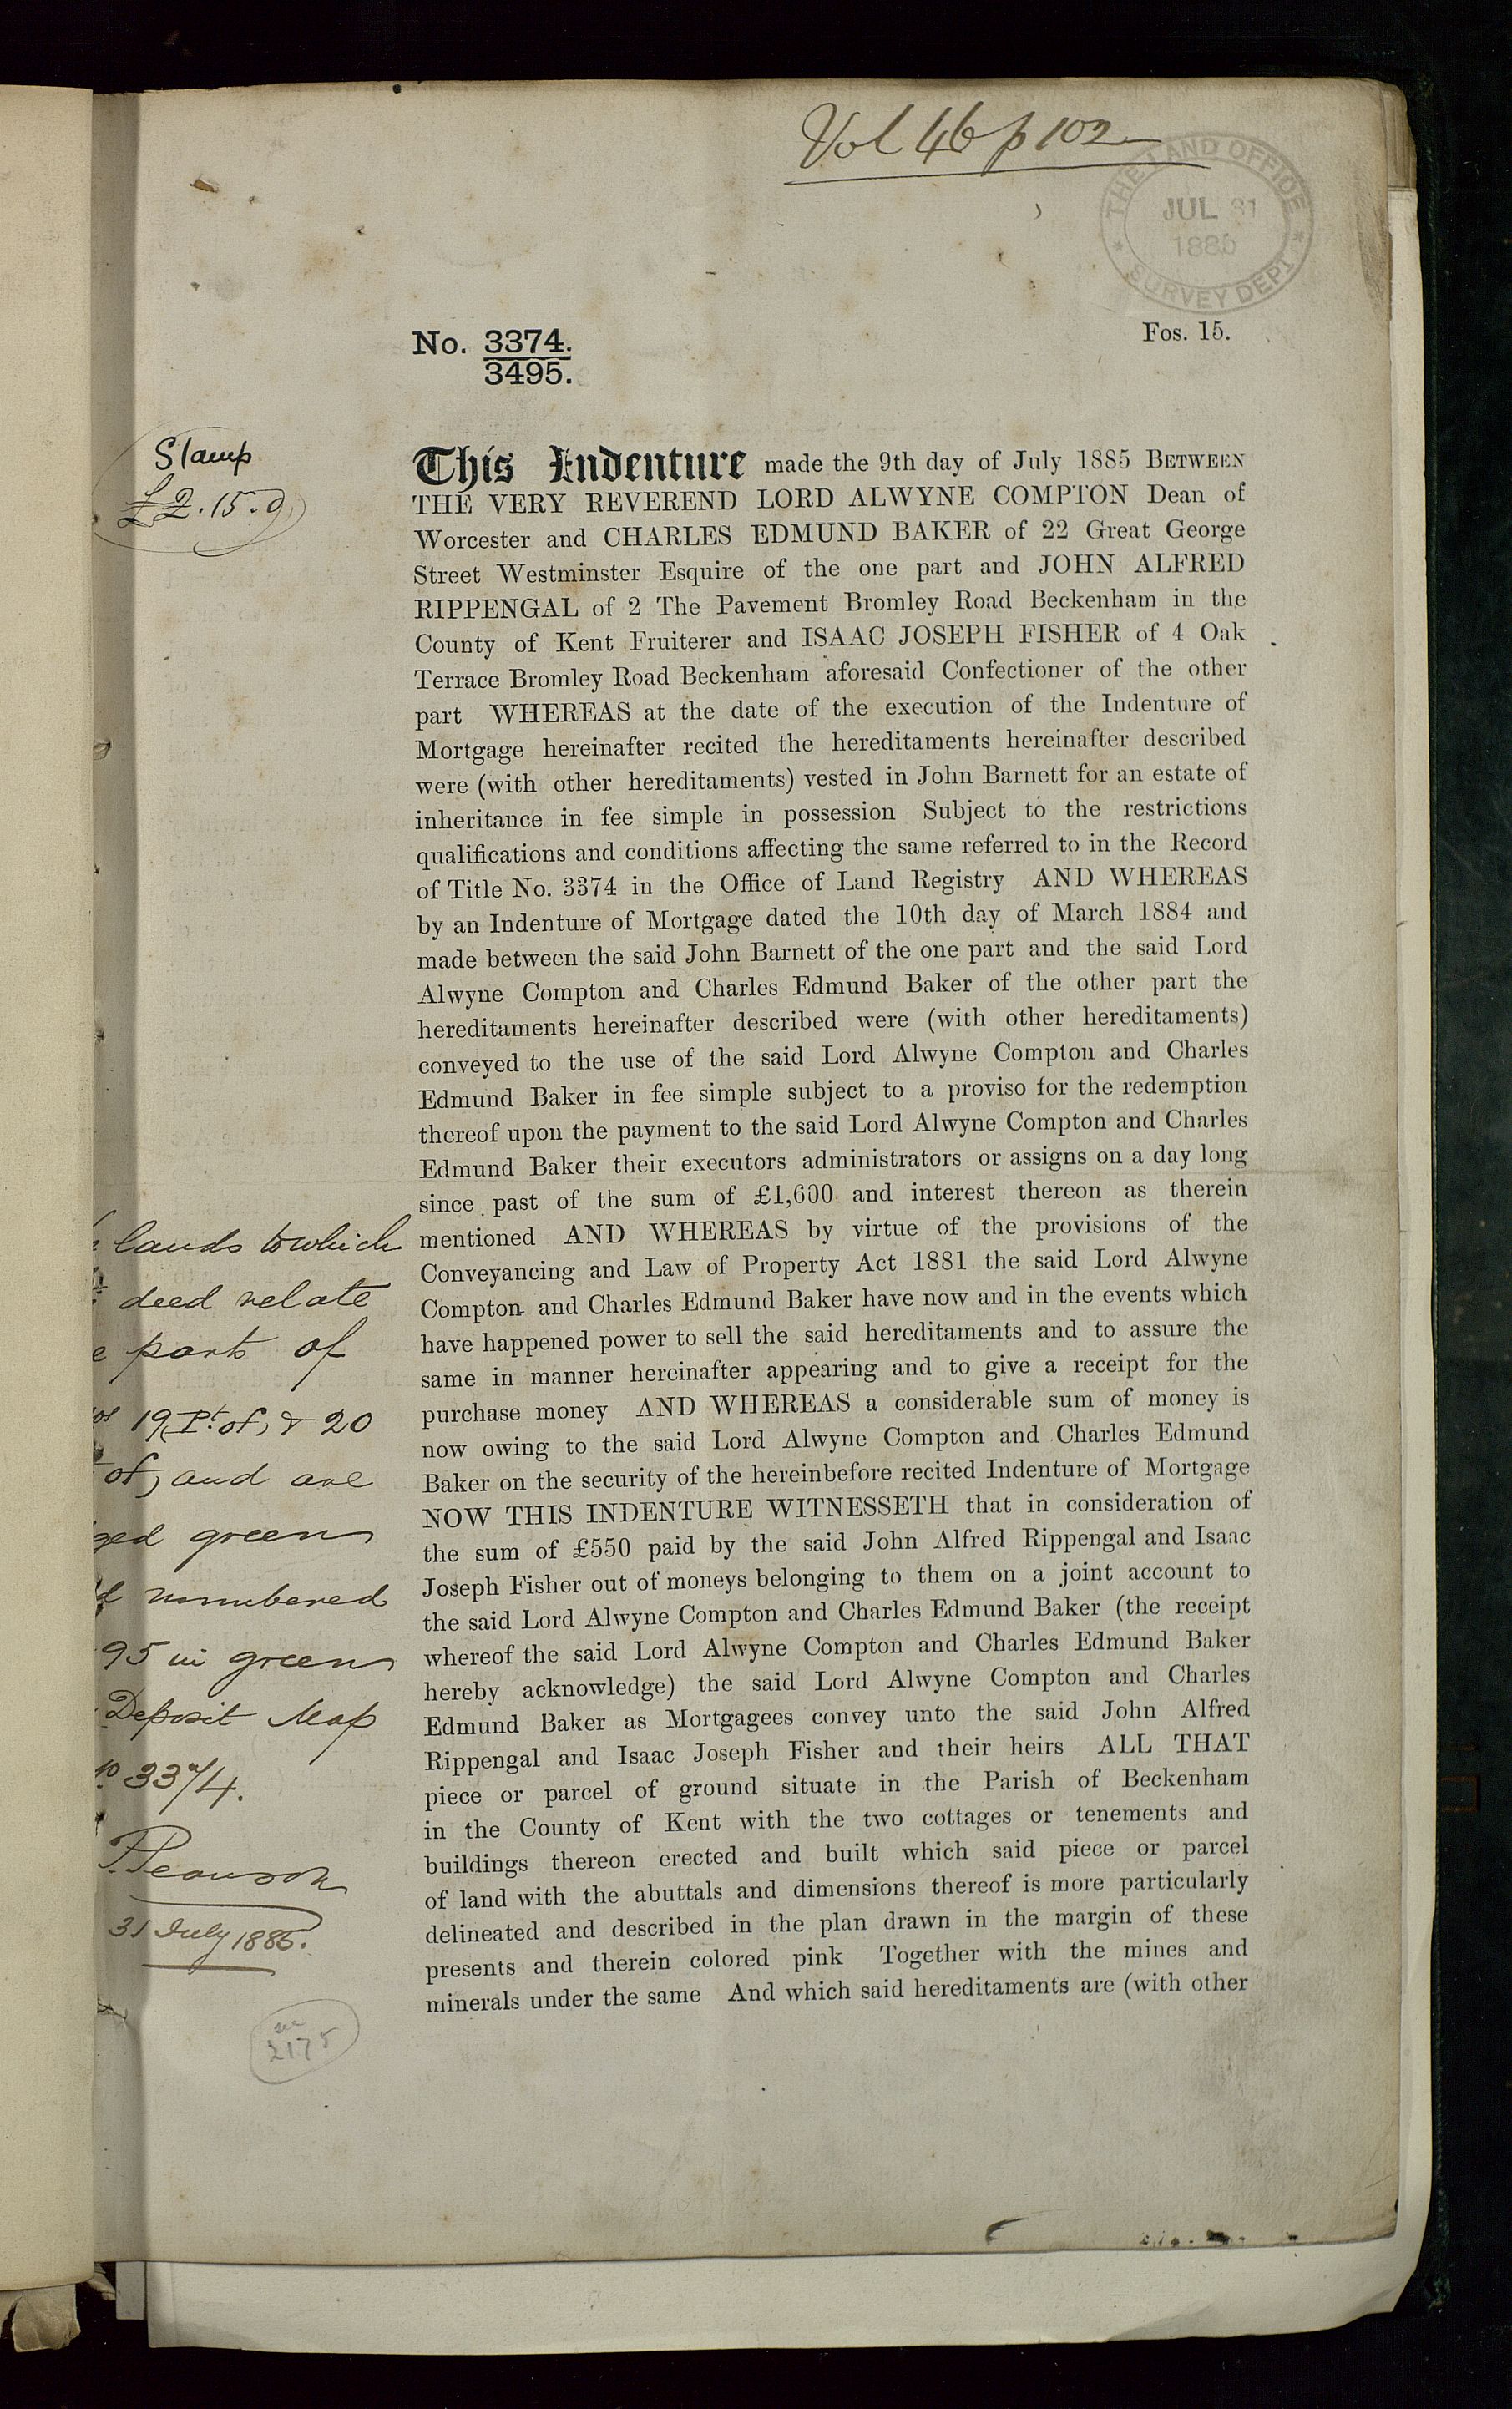 Vol 46 p 102
THE LAND OFFICE
JUL 31
1885
SURVEY DEPT
No. 3374.
3495.
Fos. 15.
Stamp
£2.15.0
This Indenture made the 9th day of July 1885 BETWEEN
THE VERY REVEREND LORD ALWYNE COMPTON Dean of
Worcester and CHARLES EDMUND BAKER of 22 Great George
Street Westminster Esquire of the one part and JOHN ALFRED
RIPPENGAL of 2 The Pavement Bromley Road Beckenham in the
County of Kent Fruiterer and ISAAC JOSEPH FISHER of 4 Oak
Terrace Bromley Road Beckenham aforesaid Confectioner of the other
part WHEREAS at the date of the execution of the Indenture of
Mortgage hereinafter recited the hereditaments hereinafter described
were (with other hereditaments) vested in John Barnett for an estate of
inheritance in fee simple in possession Subject to the restrictions
qualifications and conditions affecting the same referred to in the Record
of Title No. 3374 in the Office of Land Registry AND WHEREAS
by an Indenture of Mortgage dated the 10th day of March 1884 and
made between the said John Barnett of the one part and the said Lord
Alwyne Compton and Charles Edmund Baker of the other part the
hereditaments hereinafter described were (with other hereditaments)
conveyed to the use of the said Lord Alwyne Compton and Charles
Edmund Baker in fee simple subject to a proviso for the redemption
thereof upon the payment to the said Lord Alwyne Compton and Charles
Edmund Baker their executors administrators or assigns on a day long
since past of the sum of £1,600 and interest thereon as therein
mentioned AND WHEREAS by virtue of the provisions of the
Conveyancing and Law of Property Act 1881 the said Lord Alwyne
Compton and Charles Edmund Baker have now and in the events which
have happened power to sell the said hereditaments and to assure the
same in manner hereinafter appearing and to give a receipt for the
purchase money AND WHEREAS a considerable sum of money is
now owing to the said Lord Alwyne Compton and Charles Edmund
Baker on the security of the hereinbefore recited Indenture of Mortgage
NOW THIS INDENTURE WITNESSETH that in consideration of
the sum of £550 paid by the said John Alfred Rippengal and Isaac
Joseph Fisher out of moneys belonging to them on a joint account to
the said Lord Alwyne Compton and Charles Edmund Baker (the receipt
whereof the said Lord Alwyne Compton and Charles Edmund Baker
hereby acknowledge) the said Lord Alwyne Compton and Charles
Edmund Baker as Mortgagees convey unto the said John Alfred
Rippengal and Isaac Joseph Fisher and their heirs ALL THAT
piece or parcel of ground situate in the Parish of Beckenham
in the County of Kent with the two cottages or tenements and
buildings thereon erected and built which said piece or parcel
of land with the abuttals and dimensions thereof is more particularly
delineated and described in the plan drawn in the margin of these
presents and therein colored pink Together with the mines and
minerals under the same And which said hereditaments are (with other
lands to which
deed relate
parts of
19 (Pt. of) & 20
of) and are
ged green
numbered
95 in green
Deposit Map
3374.
Pearson
31 July 1885.
2175